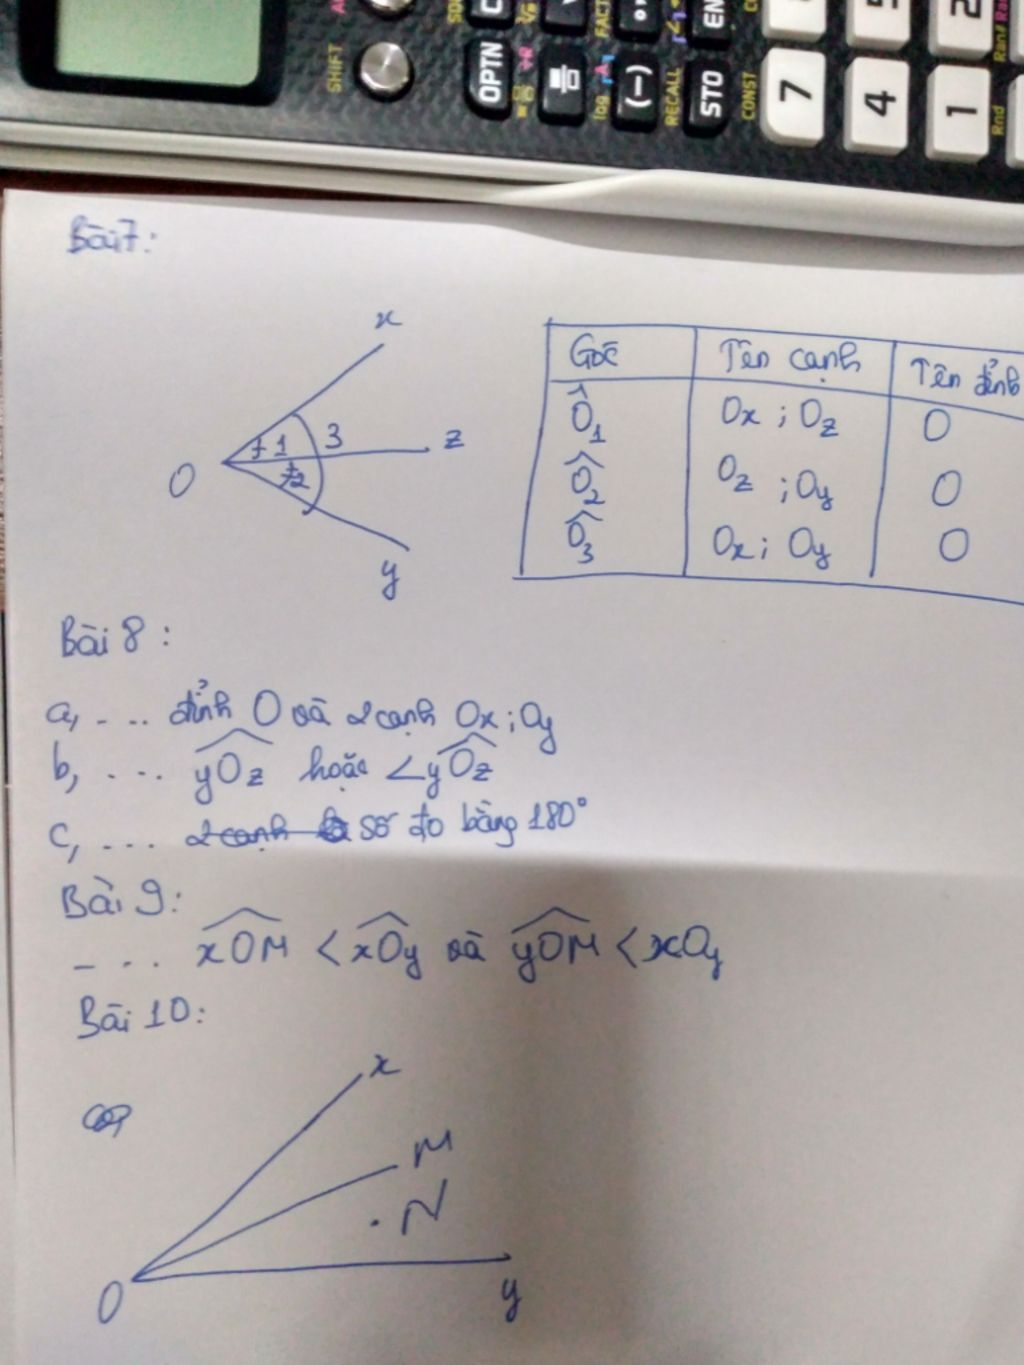 SHIFT
OPTN
(−)
STO
ENG
RECALL
CONST
FACT
log
7
4
1
Rnd
Ran#
Bài 7:
x
1
3
z
2
O
y
Góc Tên cạnh Tên đỉnh
Ô1 Ox ; Oz O
Ô2 Oz ; Oy O
Ô3 Ox ; Oy O
Bài 8 :
a, ... đỉnh O và 2 cạnh Ox ; Oy
b, ... yOz hoặc ∠yOz
c, ... 2 cạnh là số đo bằng 180°
Bài 9:
... xOM < xOy và yOM < xOy
Bài 10:
x
M
. N
O
y